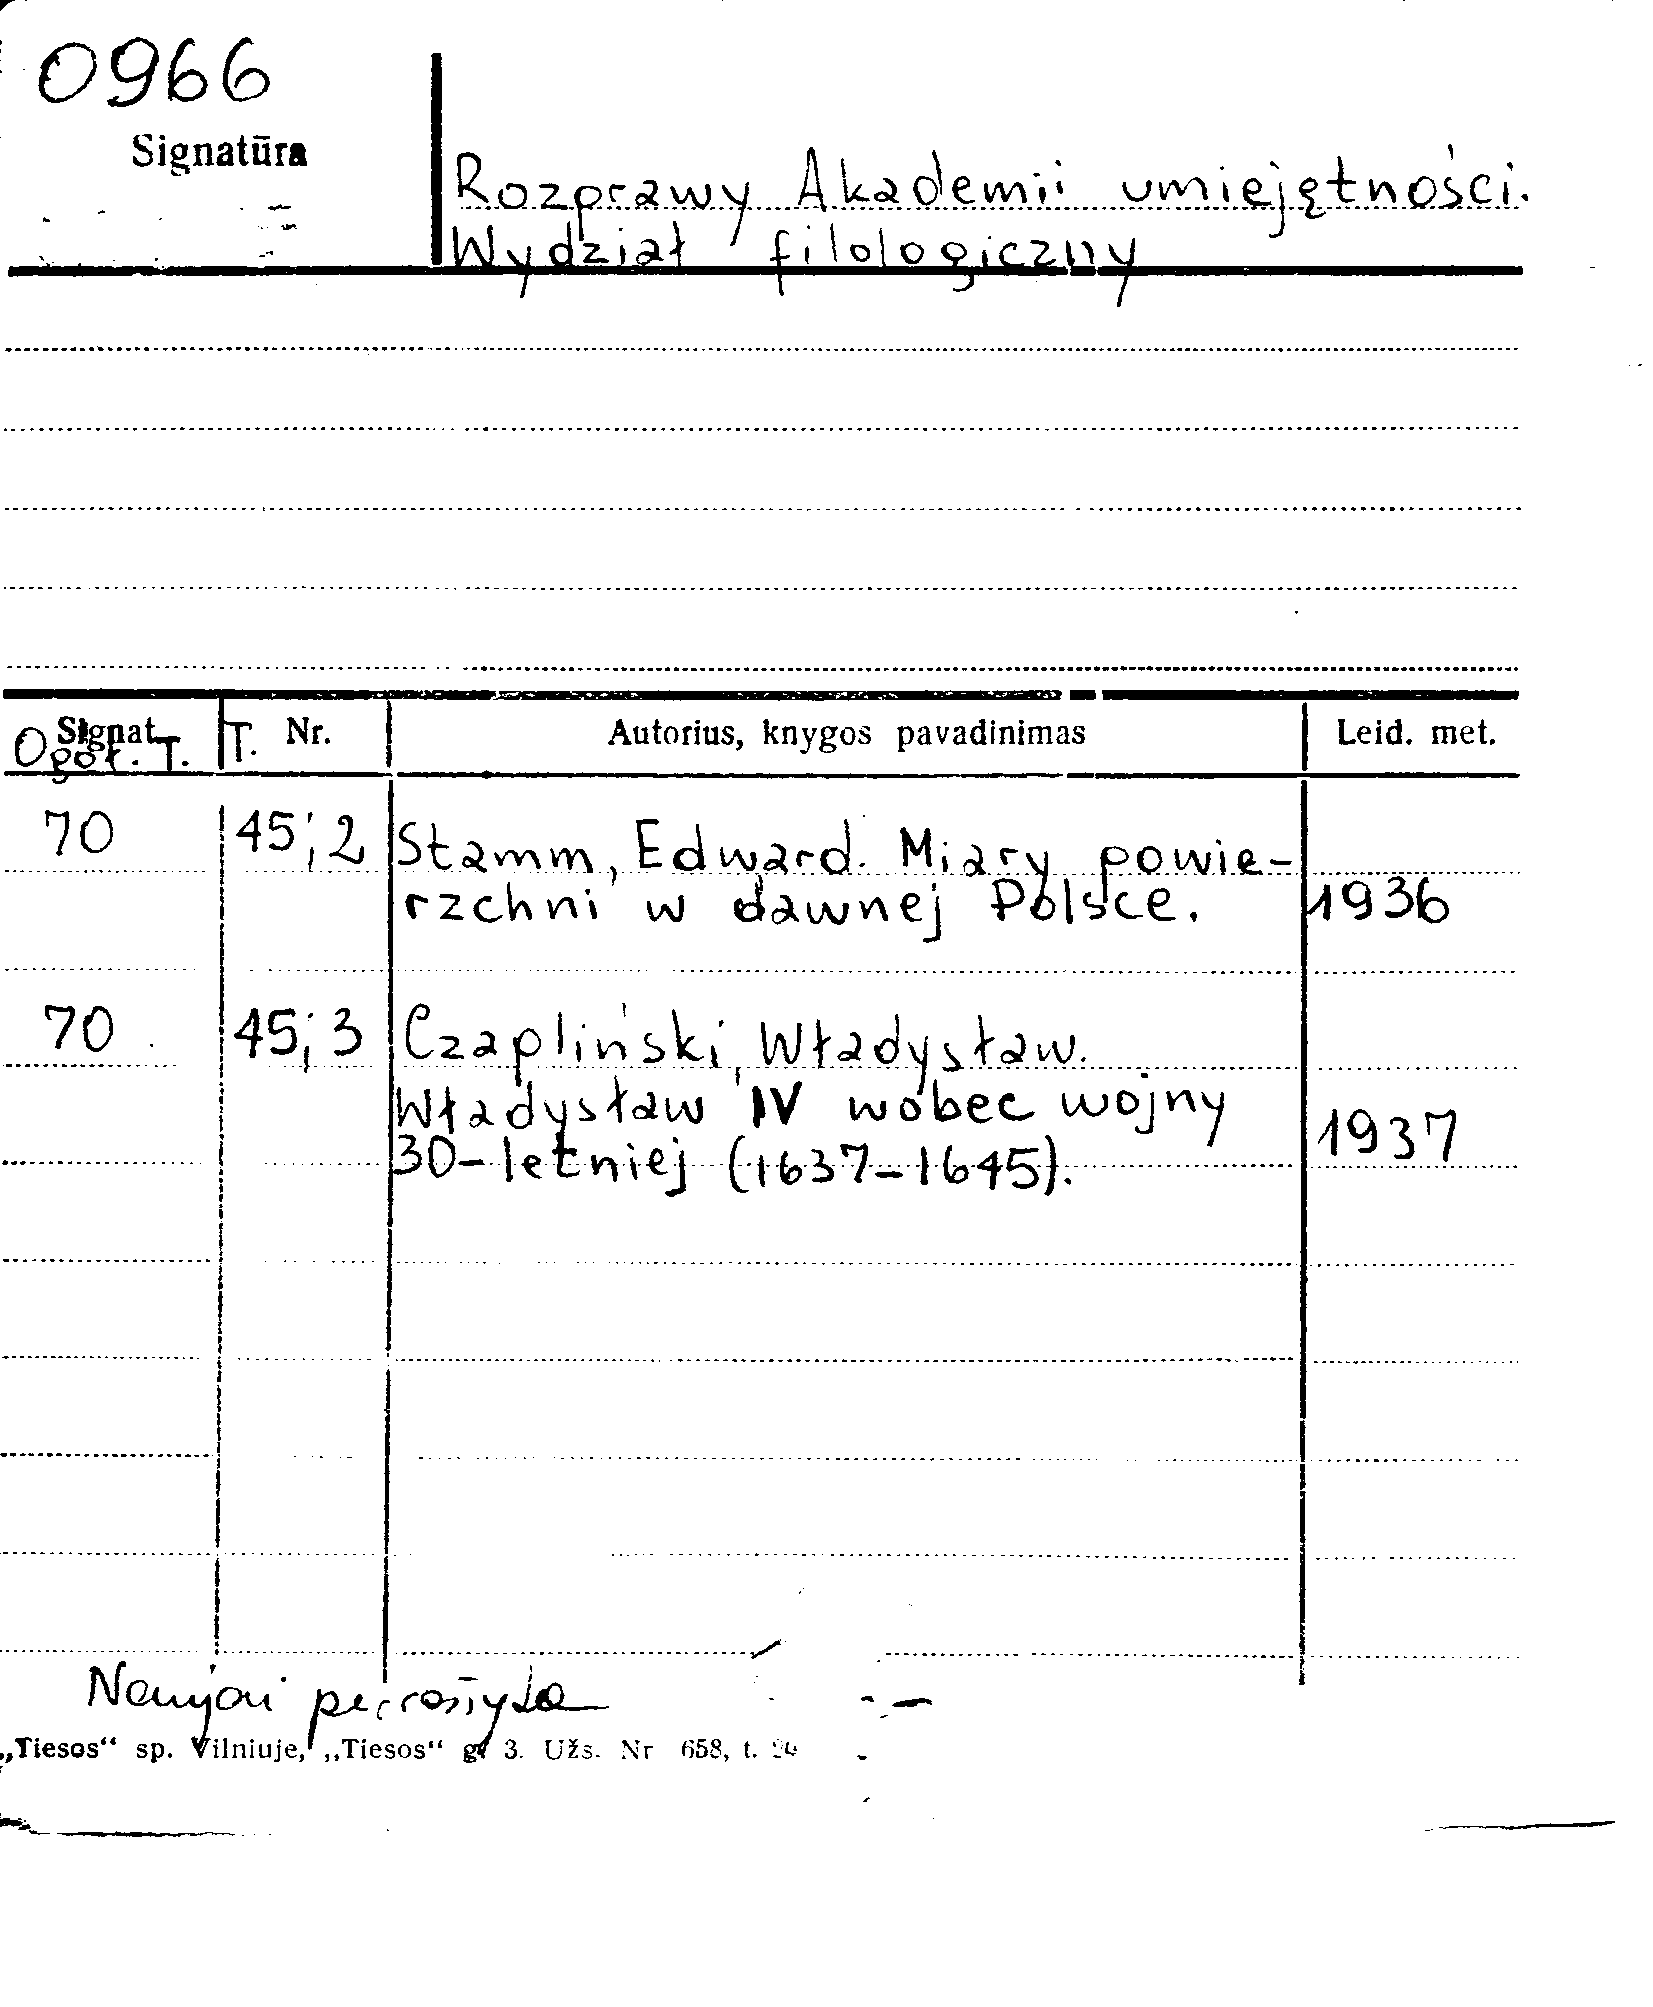 0966
Signatūra
Rozprawy Akademii umiejętności.
Wydział filologiczny
Signat. T. Nr. Autorius, knygos pavadinimas Leid. met.
Ogół. T.
70 45; 2 Stamm, Edward. Miary powie-
rzchni w dawnej Polsce. 1936
70 45; 3 Czapliński, Władysław.
Władysław IV wobec wojny
30-letniej (1637-1645). 1937
Naujai perrašyta
„Tiesos“ sp. Vilniuje, „Tiesos“ g. 3. Užs. Nr 658, t.